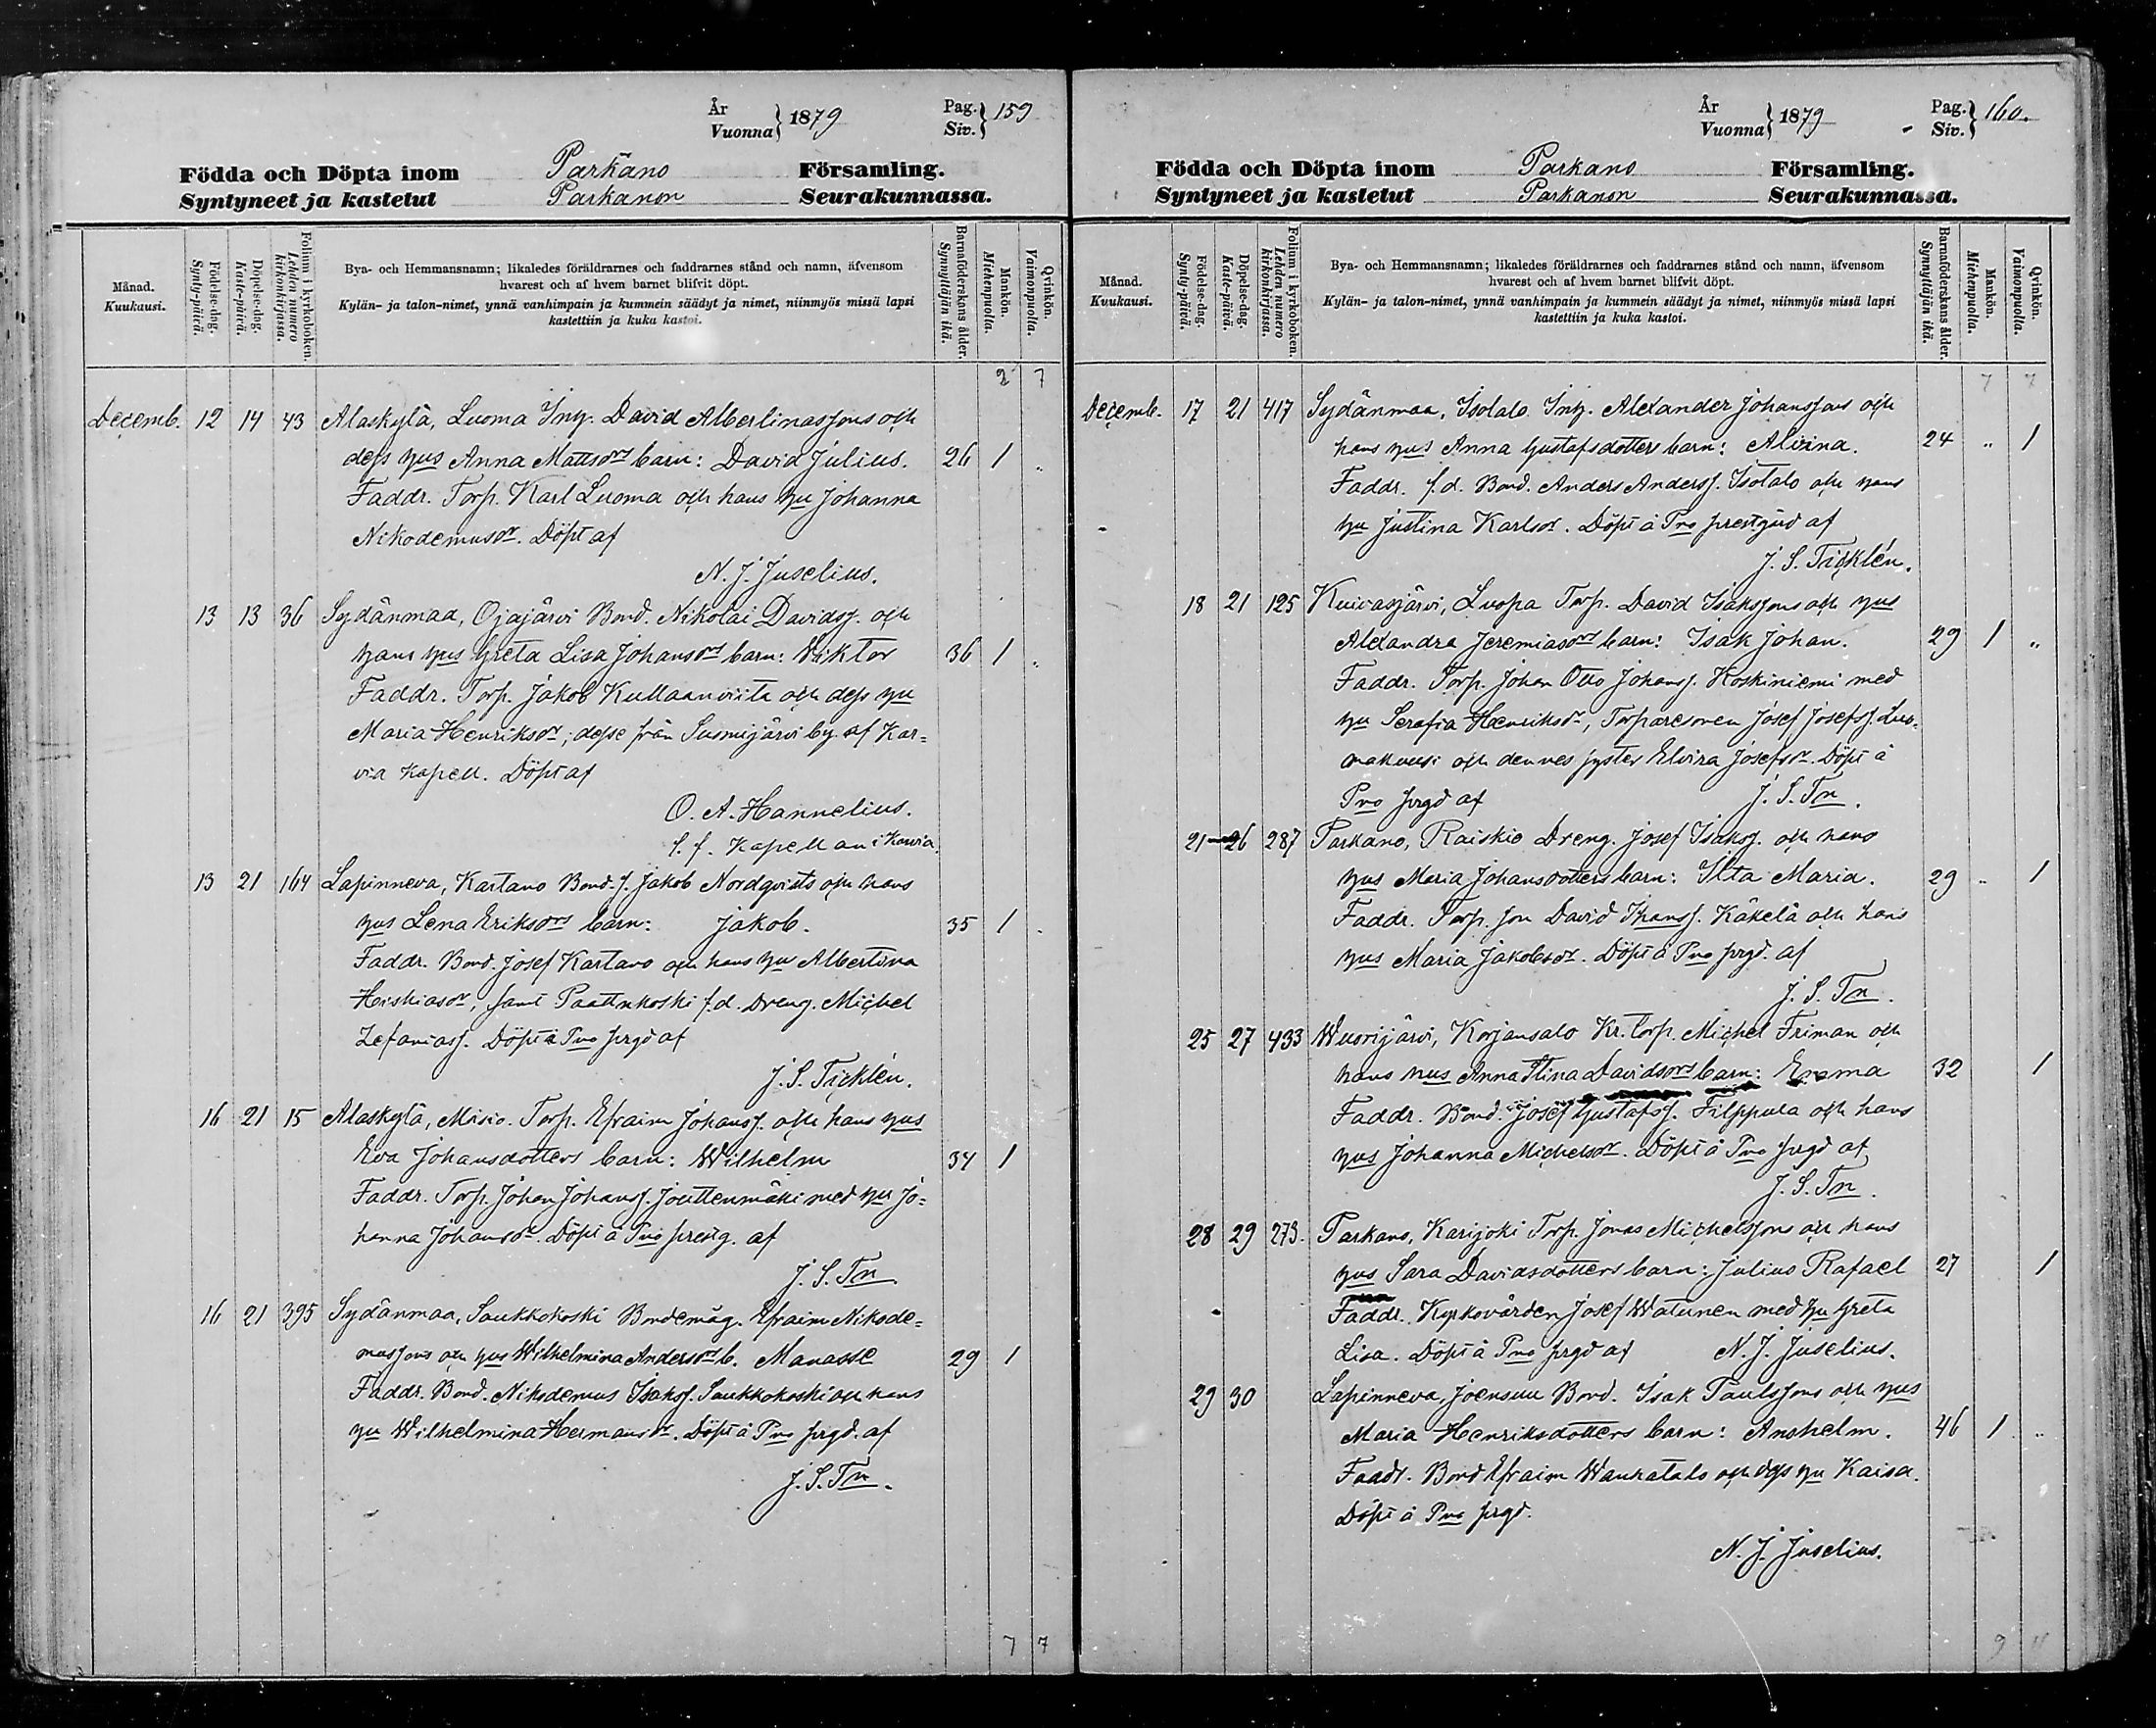 År
Vuonna } 1879
Pag.
Siv. } 159
Födda och Döpta inom Parkano Församling.
Syntyneet ja kastetut Parkanon Seurakunnassa.
Månad.
Kuukausi.
Födelse-dag.
Synty-päivä.
Döpelse-dag.
Kaste-päivä.
Folium i kyrkoboken.
Lehden numero kirkonkirjassa.
Bya- och Hemmansnamn; likaledes föräldrarnes och faddrarnes stånd och namn, äfvensom
hvarest och af hvem barnet blifvit döpt.
Kylän- ja talon-nimet, ynnä vanhimpain ja kummein säädyt ja nimet, niinmyös missä lapsi
kastettiin ja kuka kastoi.
Barnaföderskans ålder.
Synnyttäjän ikä.
Mankön.
Miehenpuolia.
Qvinkön.
Vaimonpuolia.
2 7
Decemb. 12 14 43 Alaskylä, Luoma Inh. David Albertinassons och
dess hus Anna Mattsdrs barn: David Julius. 26 1 "
Faddr. Torp. Karl Luoma och hans hu Johanna
Nikodemusdr. Döpt af
N. J. Juselius.
13 13 36 Sydänmaa, Ojajärvi Bond. Nikolai Davidss. och
hans hus Greta Lisa Johansdrs barn: Viktor 36 1 "
Faddr. Torp. Jakob Kullaanviita och dess hu
Maria Henriksdr, desse från Susmijärvi by af Kar=
via Kapell. Döpt af
O. A. Hannelius.
t. f. Kapellan i Karvia.
13 21 164 Lapinneva, Kartano Bond. s. Jakob Nordqvists och hans
hus Lena Eriksdrs barn: Jakob. 35 1 "
Faddr. Bond. Josef Kartano och hans hu Albertina
Heiskiasdr, samt Paattinkoski f.d. Dreng. Michel
Zefaniass. Döpt å Pno prgd af
J. S. Ticklén.
16 21 15 Alaskylä, Misio. Torp. Efraim Johanss. och hans hus
Eva Johansdotters barn: Wilhelm 34 1
Faddr. Torp. Johan Johanss. Jouttenmäki med hu Jo=
hanna Johansdr. Döpt å Pno prestg. af
J. S. Tn
16 21 395 Sydänmaa, Saukkokoski Bondemåg. Efraim Nikode=
mussons och hus Wilhelmina Andersdrs b. Manasse 29 1
Faddr. Bond. Nikodemus Isakss. Saukkokoski och hans
hu Wilhelmina Hermansdr. Döpt å Pno prgd. af
J. S. Tn.
7 7
År
Vuonna } 1879
Pag.
Siv. } 160.
Födda och Döpta inom Parkano Församling.
Syntyneet ja kastetut Parkanon Seurakunnassa.
Månad.
Kuukausi.
Födelse-dag.
Synty-päivä.
Döpelse-dag.
Kaste-päivä.
Folium i kyrkoboken.
Lehden numero kirkonkirjassa.
Bya- och Hemmansnamn; likaledes föräldrarnes och faddrarnes stånd och namn, äfvensom
hvarest och af hvem barnet blifvit döpt.
Kylän- ja talon-nimet, ynnä vanhimpain ja kummein säädyt ja nimet, niinmyös missä lapsi
kastettiin ja kuka kastoi.
Barnaföderskans ålder.
Synnyttäjän ikä.
Mankön.
Miehenpuolia.
Qvinkön.
Vaimonpuolia.
7 7
Decemb. 17 21 417 Sydänmaa, Isotalo Inh. Alexander Johanssons och
hans hus Anna Gustafsdotters barn: Alvina. 24 " 1
Faddr. f.d. Bond. Anders Anderss. Isotalo och hans
hu Justina Karlsdr. Döpt å Pno prestgård af
J. S. Ticklén.
18 21 125 Kuivasjärvi, Luopa Torp. David Isakssons och hus
Alexandra Jeremiasdrs barn: Isak Johan. 29 1 "
Faddr. Torp. Johan Otto Johanss. Koskiniemi med
hu Serafia Henriksdr, Torparesonen Josef Josefss. Luo=
makuusi och dennes syster Elvira Josefsdr. Döpt å
Pno prgd af J. S. Tn.
21 26 287 Parkano, Raiskio Dreng. Josef Isakss. och hans
hus Maria Johansdotters barn: Ilta Maria. 29 " 1
Faddr. Torp. son David Ihanss. Käkelä och hans
hus Maria Jakobsdr. Döpt å Pno prgd. af
J. S. Tn.
25 27 433 Wuorijärvi, Korjansalo Kr. torp. Michel Friman och
hans hus Anna Stina Davidsdrs barn: Emma 32 1
Faddr. Bond. Josef Gustafss. Filppula och hans
hus Johanna Michelsdr. Döpt å Pno prgd af
J. S. Tn.
28 29 273. Parkano, Karijoki Torp. Jonas Michelssons och hans
hus Sara Davidsdotters barn: Julius Rafael 27 1
Faddr. Kyrkovärden Josef Watunen med hu Greta
Lisa. Döpt å Pno prgd af N. J. Juselius.
29 30 Lapinneva, Joensuu Bond. Isak Paulssons och hus
Maria Henriksdotters barn: Anshelm. 46 1 "
Faadr. Bond Efraim Wanhatalo och dess hu Kaisa.
Döpt å Pno prgd.
N. J. Juselius.
9 11